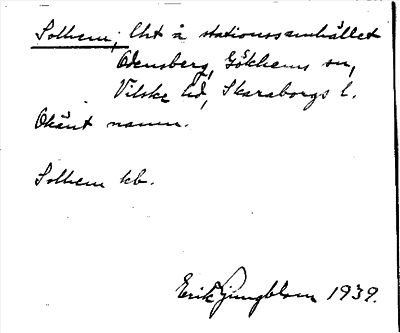 Solhem; Lht å stationssamhället
Odensberg, Gökhems sn,
Vilske hd, Skaraborgs l.
Okänt namn.
Solhem kb.
Erik Ljungblom 1939.